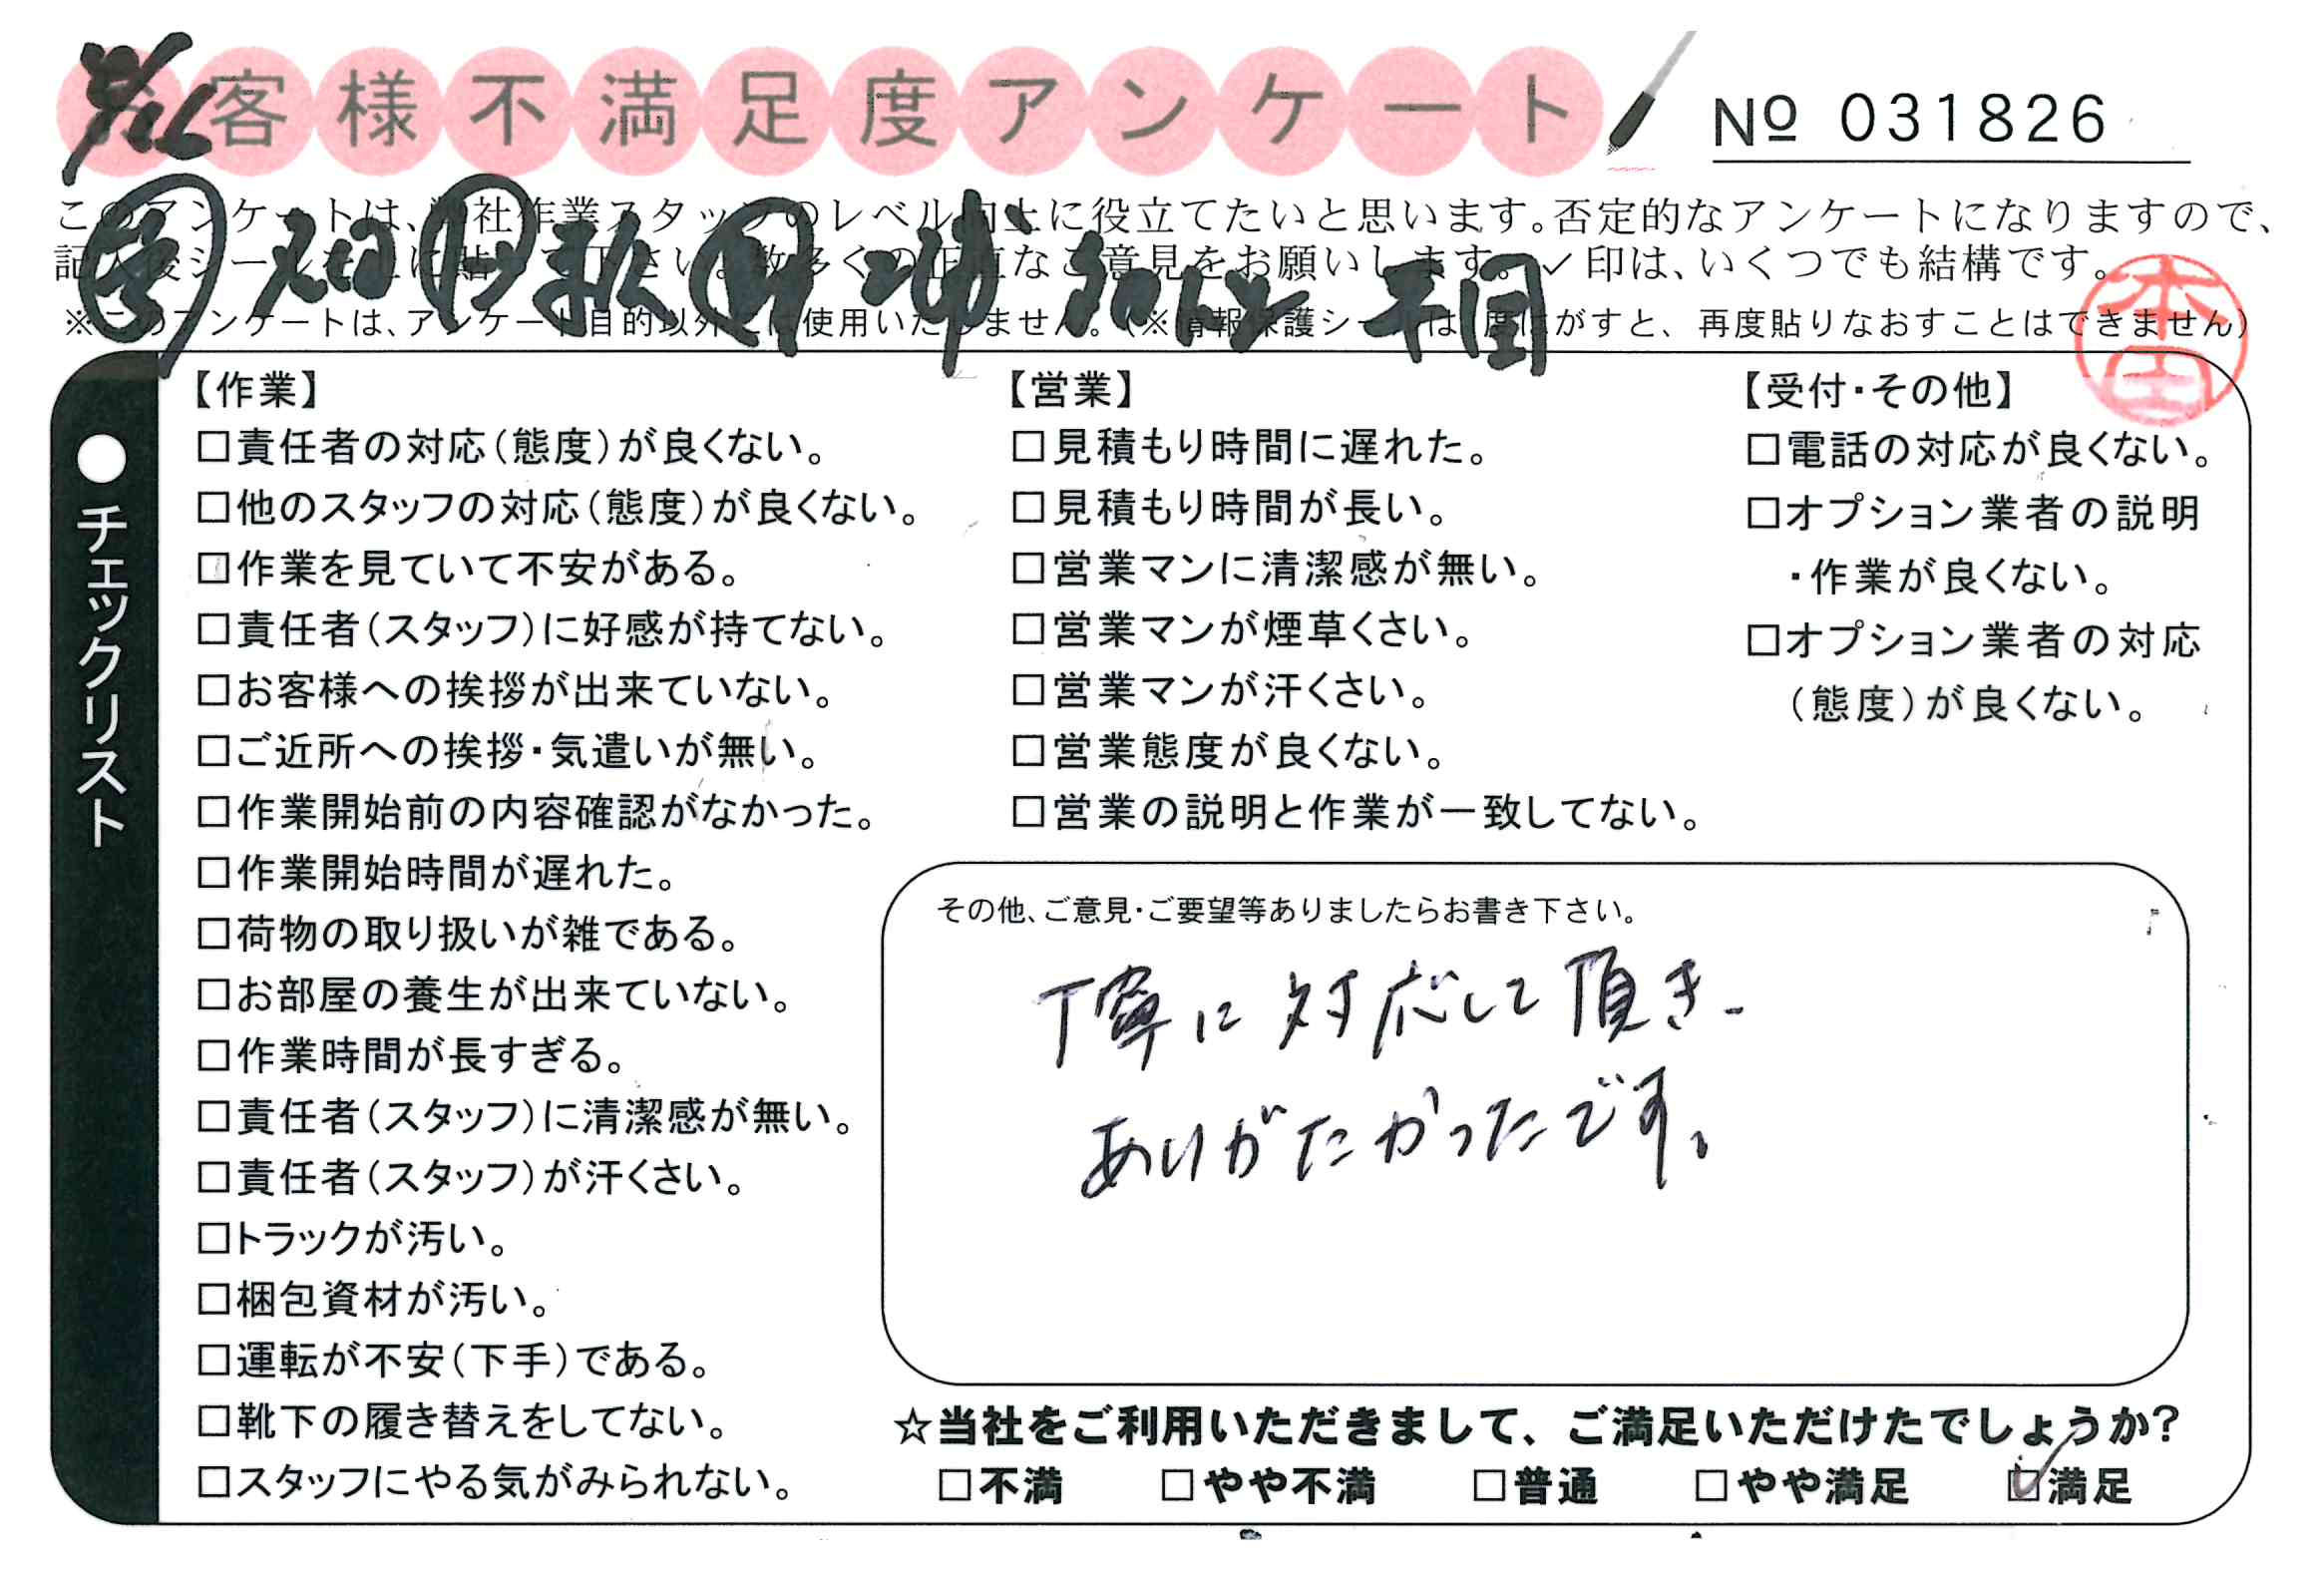 お客様不満足度アンケート
№ 031826
このアンケートは、弊社作業スタッフのレベル向上に役立てたいと思います。否定的なアンケートになりますので、
記入後シールを上に貼って下さい。数多くの正直なご意見をお願いします。✓印は、いくつでも結構です。
※このアンケートは、アンケート目的以外には使用いたしません。(※情報保護シールは一度はがすと、再度貼りなおすことはできません)
本田
●チェックリスト
【作業】
□責任者の対応(態度)が良くない。
□他のスタッフの対応(態度)が良くない。
□作業を見ていて不安がある。
□責任者(スタッフ)に好感が持てない。
□お客様への挨拶が出来ていない。
□ご近所への挨拶・気遣いが無い。
□作業開始前の内容確認がなかった。
□作業開始時間が遅れた。
□荷物の取り扱いが雑である。
□お部屋の養生が出来ていない。
□作業時間が長すぎる。
□責任者(スタッフ)に清潔感が無い。
□責任者(スタッフ)が汗くさい。
□トラックが汚い。
□梱包資材が汚い。
□運転が不安(下手)である。
□靴下の履き替えをしてない。
□スタッフにやる気がみられない。
【営業】
□見積もり時間に遅れた。
□見積もり時間が長い。
□営業マンに清潔感が無い。
□営業マンが煙草くさい。
□営業マンが汗くさい。
□営業態度が良くない。
□営業の説明と作業が一致してない。
【受付・その他】
□電話の対応が良くない。
□オプション業者の説明
・作業が良くない。
□オプション業者の対応
(態度)が良くない。
その他、ご意見・ご要望等ありましたらお書き下さい。
丁寧に対応して頂き、
ありがたかったです。
☆当社をご利用いただきまして、ご満足いただけたでしょうか?
□不満 □やや不満 □普通 □やや満足 ☑満足